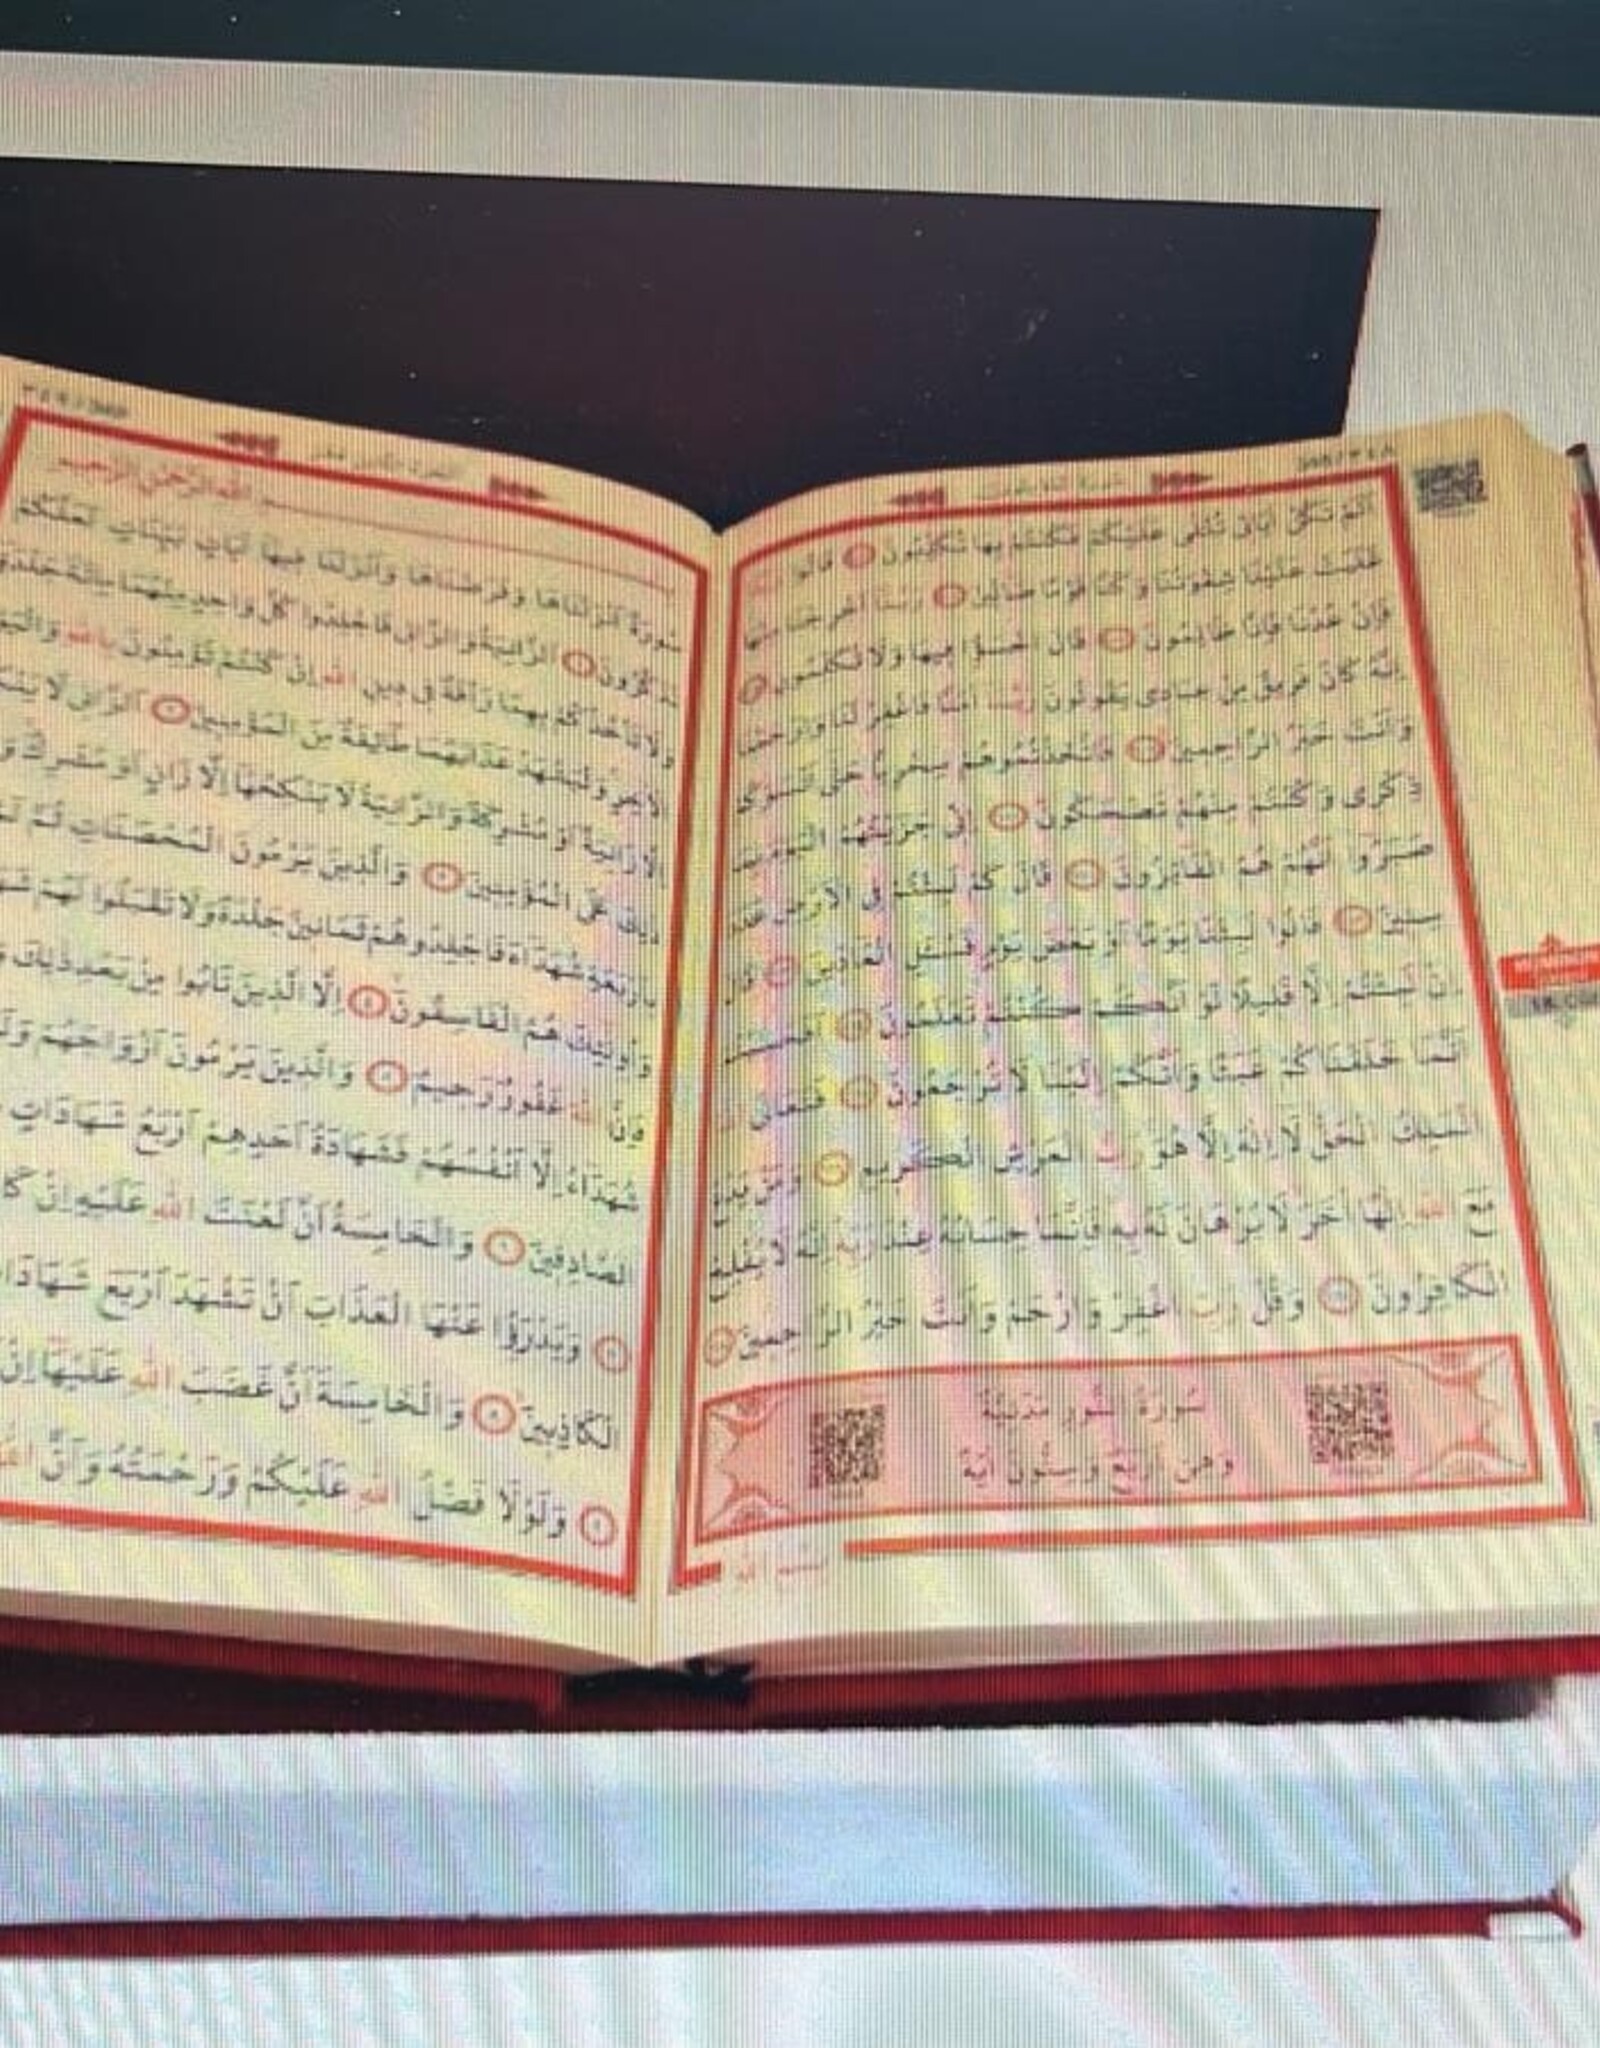 ٣٤٨
اَلَمْ تَكُنْ اٰيَاتٖى تُتْلٰى عَلَيْكُمْ فَكُنْتُمْ بِهَا تُكَذِّبُونَ قَالُوا رَبَّنَا
غَلَبَتْ عَلَيْنَا شِقْوَتُنَا وَكُنَّا قَوْمًا ضَٓالّٖينَ رَبَّنَٓا اَخْرِجْنَا مِنْهَا
فَاِنْ عُدْنَا فَاِنَّا ظَالِمُونَ قَالَ اخْسَؤُ۫ا فٖيهَا وَلَا تُكَلِّمُونِ
اِنَّهُ كَانَ فَرٖيقٌ مِنْ عِبَادٖى يَقُولُونَ رَبَّنَٓا اٰمَنَّا فَاغْفِرْ لَنَا وَارْحَمْنَا
وَاَنْتَ خَيْرُ الرَّاحِمٖينَ فَاتَّخَذْتُمُوهُمْ سِخْرِيًّا حَتّٰٓى اَنْسَوْكُمْ
ذِكْرٖى وَكُنْتُمْ مِنْهُمْ تَضْحَكُونَ اِنّٖى جَزَيْتُهُمُ الْيَوْمَ بِمَا
صَبَرُٓوا اَنَّهُمْ هُمُ الْفَٓائِزُونَ قَالَ كَمْ لَبِثْتُمْ فِى الْاَرْضِ عَدَدَ
سِنٖينَ قَالُوا لَبِثْنَا يَوْمًا اَوْ بَعْضَ يَوْمٍ فَسْـَٔلِ الْعَٓادّٖينَ قَالَ
اِنْ لَبِثْتُمْ اِلَّا قَلٖيلًا لَوْ اَنَّكُمْ كُنْتُمْ تَعْلَمُونَ اَفَحَسِبْتُمْ
اَنَّمَا خَلَقْنَاكُمْ عَبَثًا وَاَنَّكُمْ اِلَيْنَا لَا تُرْجَعُونَ فَتَعَالَى اللّٰهُ
الْمَلِكُ الْحَقُّ لَٓا اِلٰهَ اِلَّا هُوَ رَبُّ الْعَرْشِ الْكَرٖيمِ وَمَنْ يَدْعُ
مَعَ اللّٰهِ اِلٰهًا اٰخَرَ لَا بُرْهَانَ لَهُ بِهٖ فَاِنَّمَا حِسَابُهُ عِنْدَ رَبِّهٖ اِنَّهُ لَا يُفْلِحُ
الْكَافِرُونَ وَقُلْ رَبِّ اغْفِرْ وَارْحَمْ وَاَنْتَ خَيْرُ الرَّاحِمٖينَ
سُورَةُ النُّورِ مَدَنِيَّةٌ
وَهِىَ اَرْبَعٌ وَسِتُّونَ اٰيَةً
٣٤٩
بِسْمِ اللّٰهِ الرَّحْمٰنِ الرَّحٖيمِ
سُورَةٌ اَنْزَلْنَاهَا وَفَرَضْنَاهَا وَاَنْزَلْنَا فٖيهَٓا اٰيَاتٍ بَيِّنَاتٍ لَعَلَّكُمْ
تَذَكَّرُونَ ١ اَلزَّانِيَةُ وَالزَّانٖى فَاجْلِدُوا كُلَّ وَاحِدٍ مِنْهُمَا مِائَةَ جَلْدَةٍ
وَلَا تَأْخُذْكُمْ بِهِمَا رَأْفَةٌ فٖى دٖينِ اللّٰهِ اِنْ كُنْتُمْ تُؤْمِنُونَ بِاللّٰهِ وَالْيَوْمِ
الْاٰخِرِ وَلْيَشْهَدْ عَذَابَهُمَا طَٓائِفَةٌ مِنَ الْمُؤْمِنٖينَ ٢ اَلزَّانٖى لَا
اِلَّا زَانِيَةً اَوْ مُشْرِكَةً وَالزَّانِيَةُ لَا يَنْكِحُهَٓا اِلَّا زَانٍ اَوْ مُشْرِكٌ
ذٰلِكَ عَلَى الْمُؤْمِنٖينَ ٣ وَالَّذٖينَ يَرْمُونَ الْمُحْصَنَاتِ ثُمَّ
بِاَرْبَعَةِ شُهَدَٓاءَ فَاجْلِدُوهُمْ ثَمَانٖينَ جَلْدَةً وَلَا تَقْبَلُوا لَهُمْ
وَاُولٰٓئِكَ هُمُ الْفَاسِقُونَ ٤ اِلَّا الَّذٖينَ تَابُوا مِنْ بَعْدِ ذٰلِكَ
فَاِنَّ اللّٰهَ غَفُورٌ رَحٖيمٌ ٥ وَالَّذٖينَ يَرْمُونَ اَزْوَاجَهُمْ
شُهَدَٓاءُ اِلَّٓا اَنْفُسُهُمْ فَشَهَادَةُ اَحَدِهِمْ اَرْبَعُ شَهَادَاتٍ
الصَّادِقٖينَ ٦ وَالْخَامِسَةُ اَنَّ لَعْنَتَ اللّٰهِ عَلَيْهِ اِنْ
٧ وَيَدْرَؤُ۬ا عَنْهَا الْعَذَابَ اَنْ تَشْهَدَ اَرْبَعَ
الْكَاذِبٖينَ ٨ وَالْخَامِسَةَ اَنَّ غَضَبَ اللّٰهِ عَلَيْهَٓا اِنْ
٩ وَلَوْلَا فَضْلُ اللّٰهِ عَلَيْكُمْ وَرَحْمَتُهُ وَاَنَّ اللّٰهَ